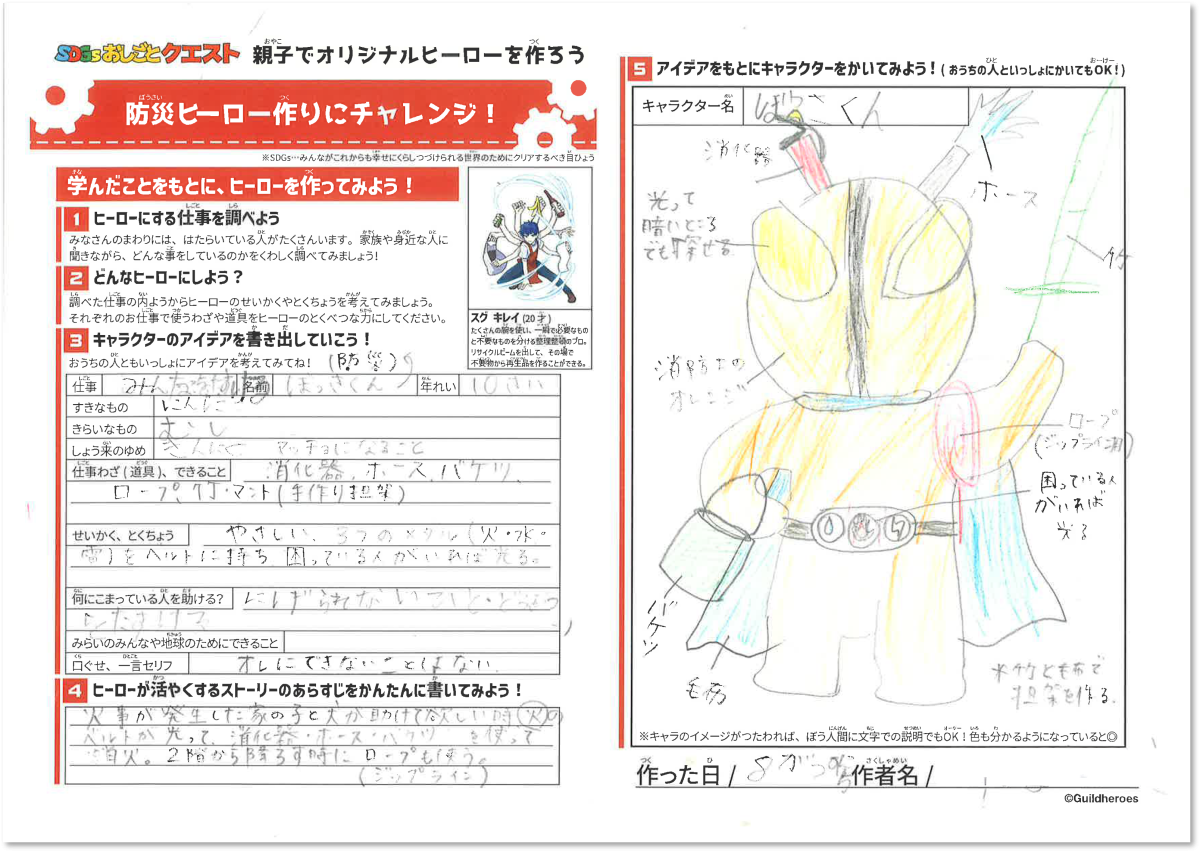 SDGsおしごとクエスト 親子でオリジナルヒーローを作ろう
防災ヒーロー作りにチャレンジ！
※SDGs…みんながこれからも幸せにくらしつづけられる世界のためにクリアするべき目ひょう
学んだことをもとに、ヒーローを作ってみよう！
1 ヒーローにする仕事を調べよう
みなさんのまわりには、はたらいている人がたくさんいます。家族や身近な人に
聞きながら、どんな事をしているのかをくわしく調べてみましょう！
2 どんなヒーローにしよう？
調べた仕事の内ようからヒーローのせいかくやとくちょうを考えてみましょう。
それぞれのお仕事で使うわざや道具をヒーローのとくべつな力にしてください。
スグ キレイ (20才)
たくさんの腕を使い、一瞬で必要なもの
と不要なものを分ける整理整頓のプロ。
リサイクルビームを出して、その場で
不要物から再生品を作ることができる。
3 キャラクターのアイデアを書き出していこう！
おうちの人ともいっしょにアイデアを考えてみてね！
仕事 名前 ぼうさくん 年れい 10さい
すきなもの にんじん
きらいなもの むし
しょう来のゆめ マッチョになること
仕事わざ(道具)、できること 消化器、ホース、バケツ、
ロープ、竹・マント(手作り担架)
せいかく、とくちょう やさしい、3つのメダル(火・水・
雷)をベルトに持ち 困っている人がいれば光る。
何にこまっている人を助ける？ にげられない
みらいのみんなや地球のためにできること
口ぐせ、一言セリフ オレにできないことはない
4 ヒーローが活やくするストーリーのあらすじをかんたんに書いてみよう！
火事が発生した家の子と犬が助けて欲しい時(火)の
ベルトが光って、消化器・ホース・バケツを使って
消火。2階から降ろす時にロープも使う。
(ジップライン)
5 アイデアをもとにキャラクターをかいてみよう！(おうちの人といっしょにかいてもOK！)
キャラクター名 ぼうさくん
消化器
ホース
光って
暗いところ
でも探せる
竹
消防士の
オレンジ
ロープ
(ジップライン用)
困っている人
がいれば
光る
バケツ
毛布
※竹と毛布で
担架を作る。
※キャラのイメージがつたわれば、ぼう人間に文字での説明でもOK！色も分かるようになっていると◎
作った日/ 作者名/
©Guildheroes